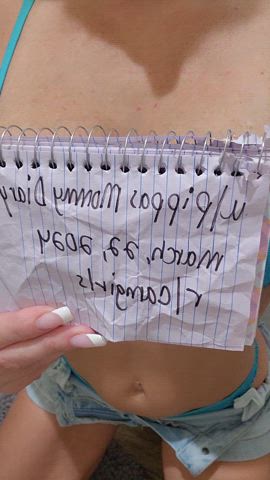 u/Pippas Mommy Diary
March, 22, 2024
r/camgirls